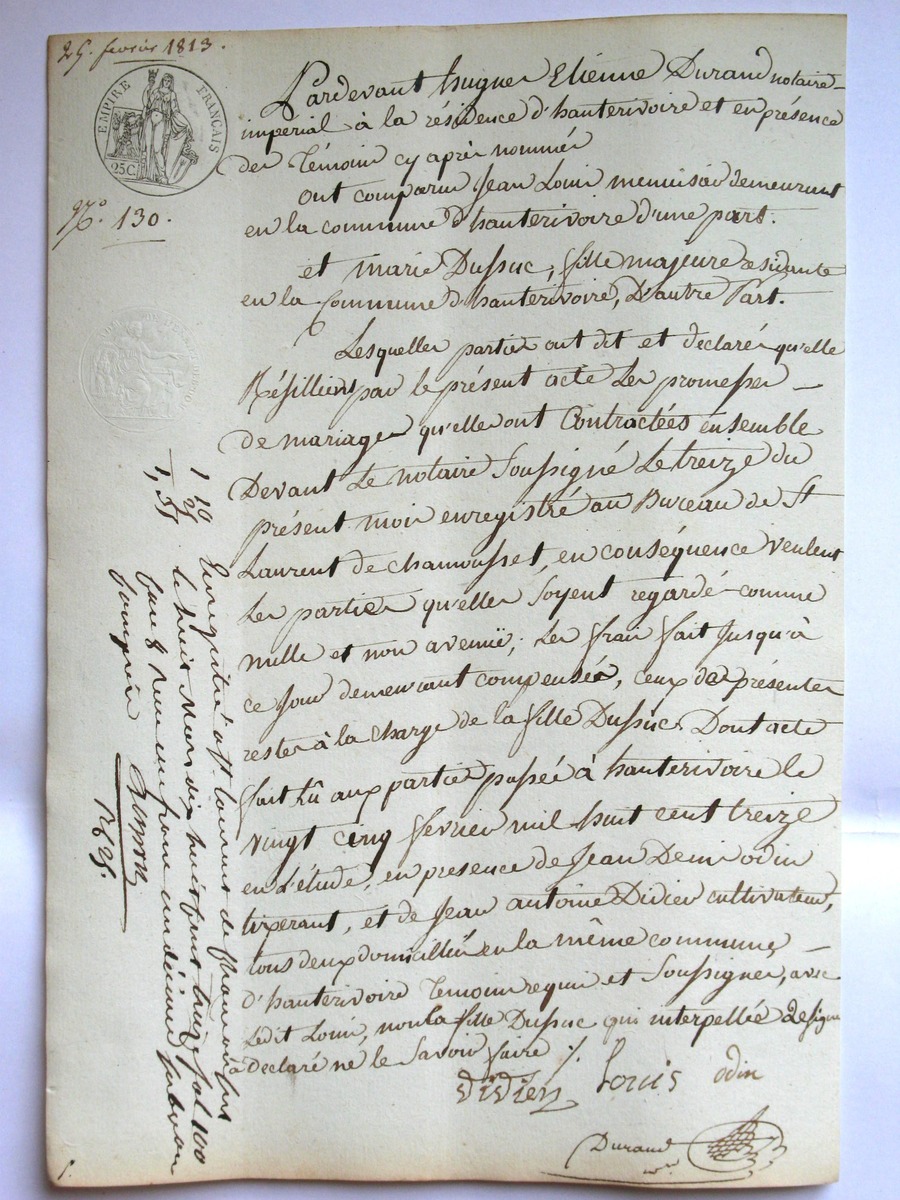 25. fevrier 1813.
EMPIRE FRANÇAIS
25 C.
N.º 130.
Pardevant hugues Etienne Durand notaire
imperial à la résidence d'hauterivoire et en présence
des Témoins cy après nommés
ont comparus Jean Louis menuisier demeurant
en la commune d'hauterivoire d'une part.
et marie Dussuc, fille majeure residante
en la Commune d'hauterivoire, D'autre Part.
Lesquelles parties ont dit et declaré qu'elle
Résilliens par le présent acte Les promesses
de mariages qu'elle ont Contractées ensemble
Devant Le notaire Soussigné Le treize du
présent mois enregistré au Bureau de St
Laurent de chamousset, en conséquence veulent
Les parties qu'elles Soyent regardé comme
nulle et non avenuë; Les frais fait Jusqu'à
ce Jour demeurant compensés, ceux des présentes
restes à la charge de la fille Dussuc. Dont acte
fait Lû aux parties passée à hauterivoire le
vingt cinq fevrier mil huit cent treize
en L'étude, en presence de Jean Deni odin
tixerant, et de Jean antoine Didier cultivateur,
tous deux domicilliés en la même commune
d'hauterivoire Temoins requis et Soussignés, avec
Ledit Louis, non la fille Dussuc qui interpellée de signer
a declaré ne le Savoir faire ./.
Didier Louis odin
Durand
nre
Enregistré à St. Laurent de Chamousset
le huit Mars dix huit cent treize fol 100
Case 8 reçu un franc un décime subvon
Comprise
1,10
25
1,35
R 25.